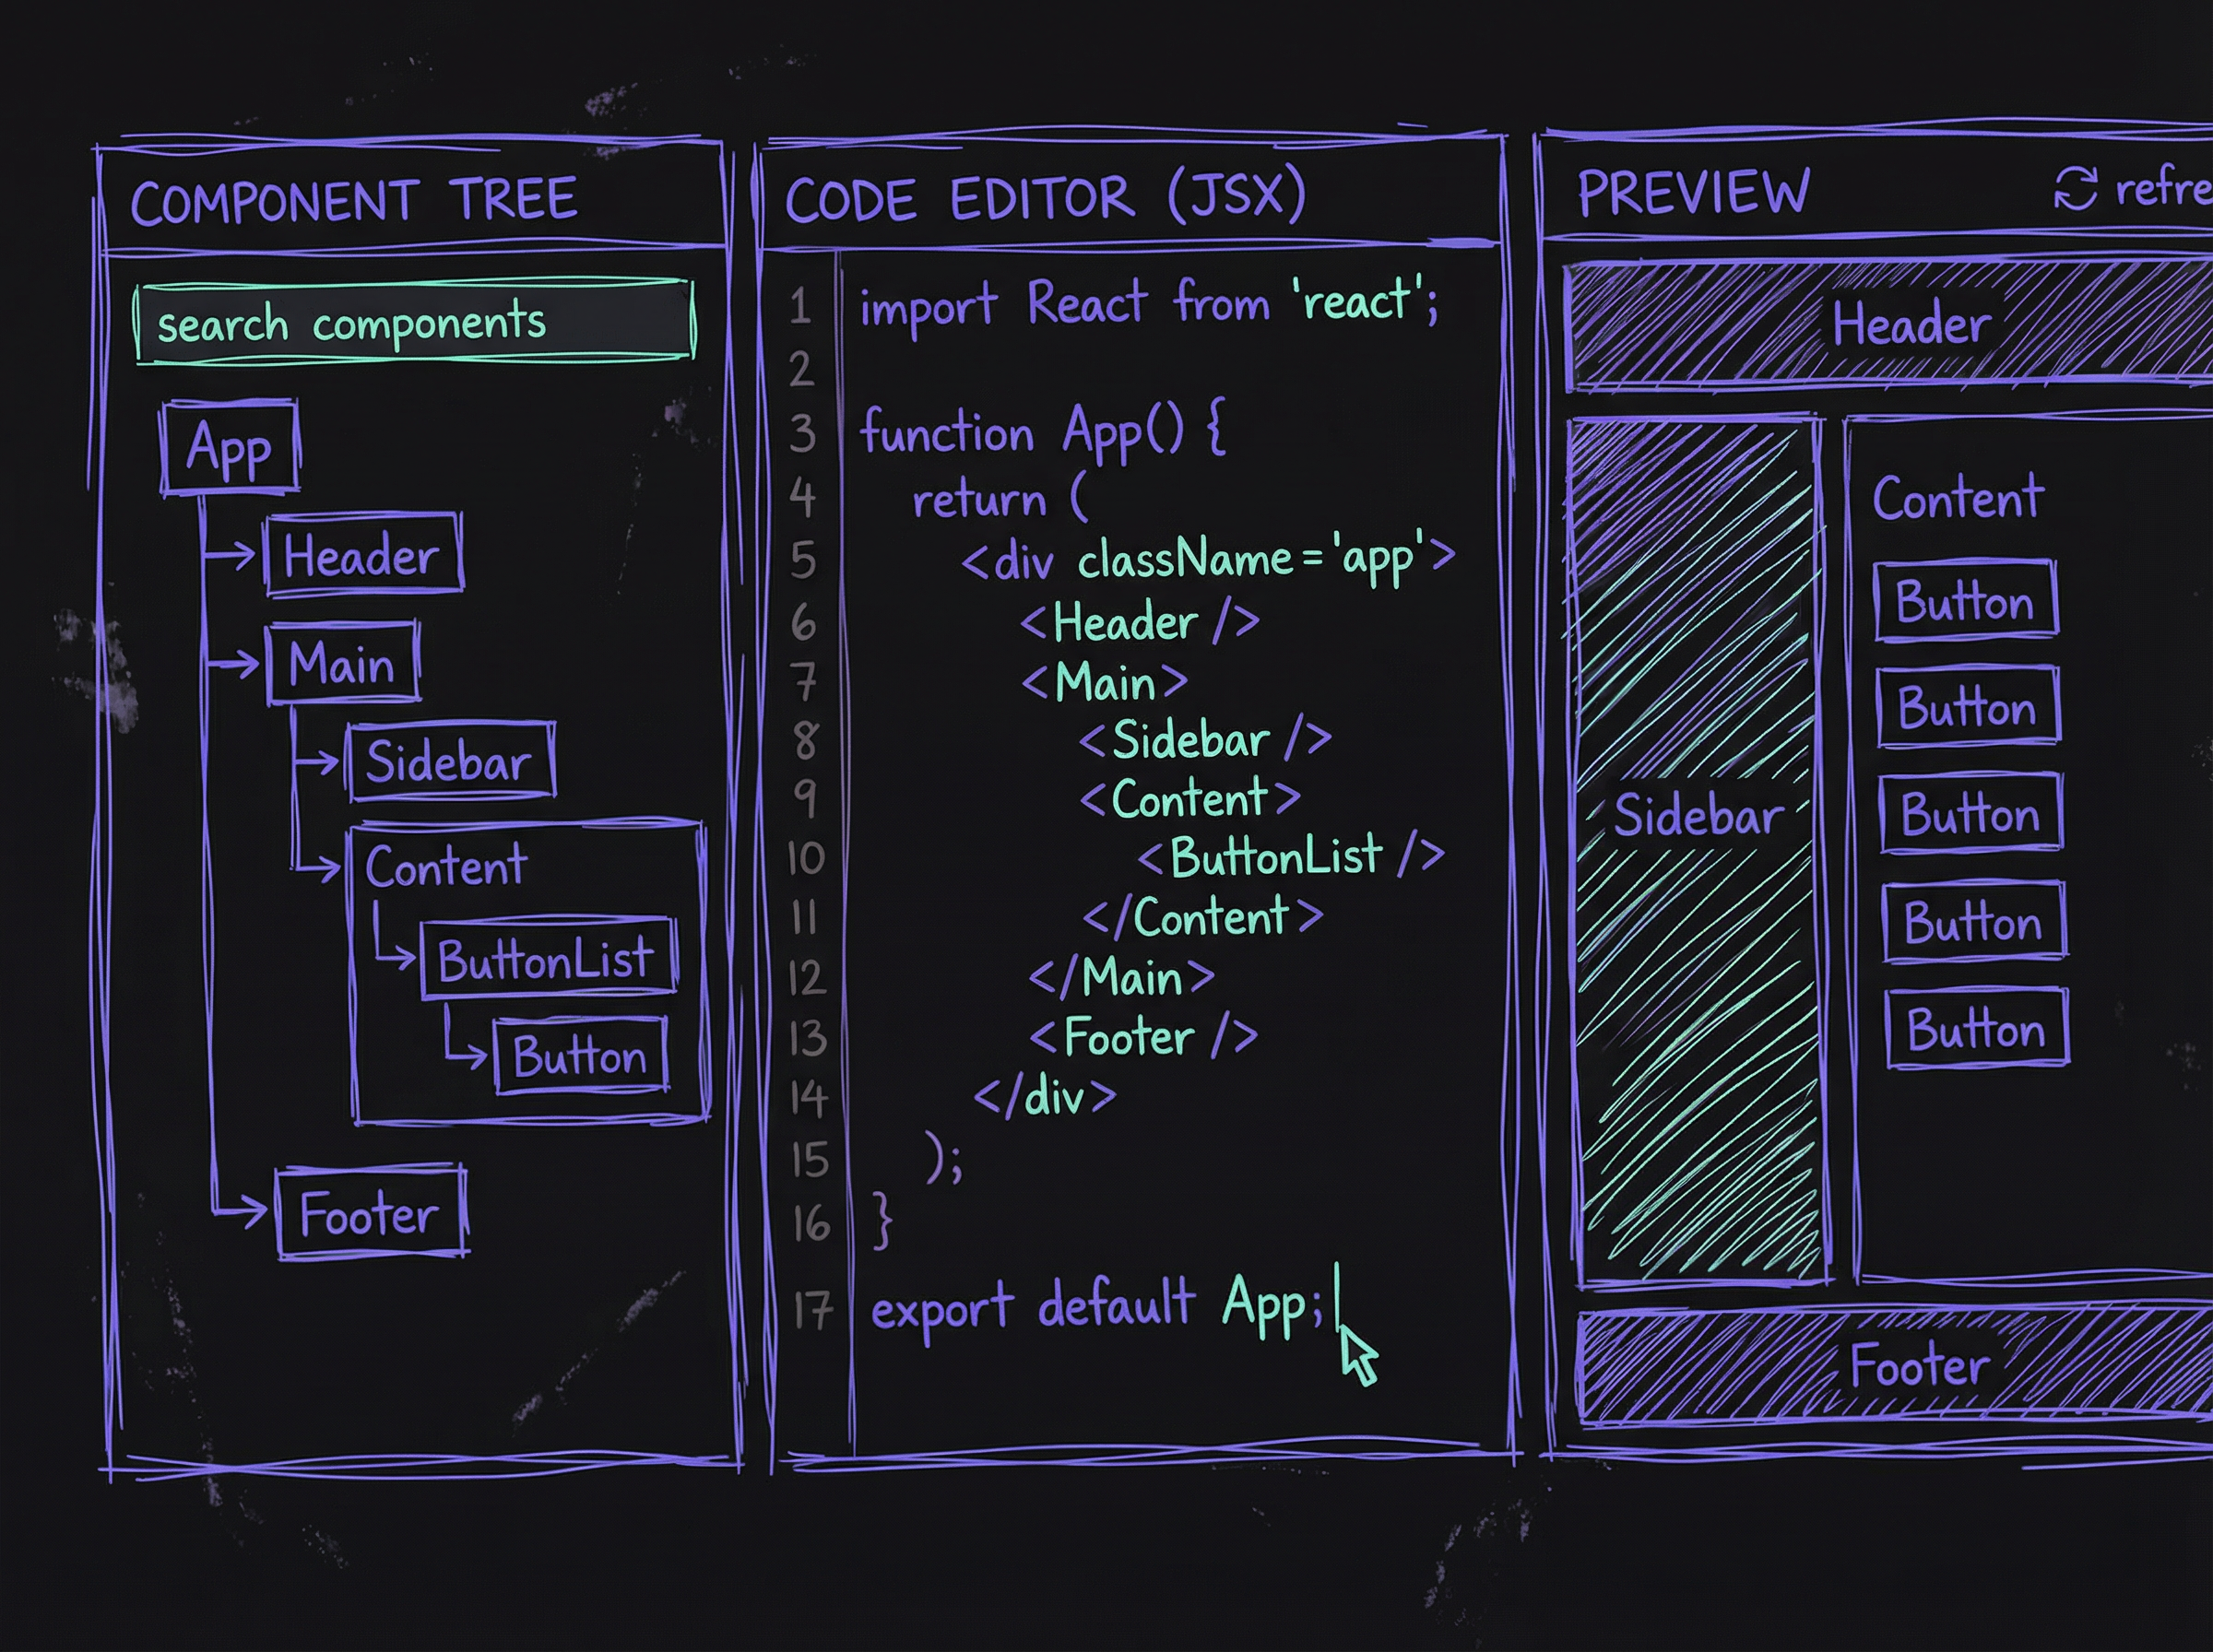 COMPONENT TREE
search components
App
Header
Main
Sidebar
Content
ButtonList
Button
Footer
CODE EDITOR (JSX)
1 import React from 'react';
2
3 function App() {
4 return (
5 <div className='app'>
6 <Header />
7 <Main>
8 <Sidebar />
9 <Content>
10 <ButtonList />
11 </Content>
12 </Main>
13 <Footer />
14 </div>
15 );
16 }
17 export default App;
PREVIEW refre
Header
Sidebar
Content
Button
Button
Button
Button
Button
Footer